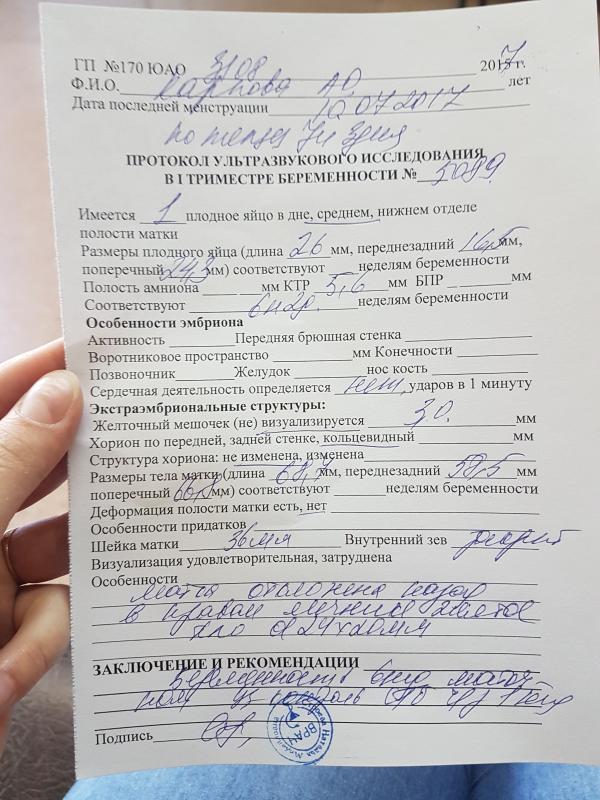 ГП №170 ЮАО 3108 2017 г.
Ф.И.О. Карпова АО лет
Дата последней менструации 10.07.2017
7н 3дня
ПРОТОКОЛ УЛЬТРАЗВУКОВОГО ИССЛЕДОВАНИЯ
В I ТРИМЕСТРЕ БЕРЕМЕННОСТИ №
Имеется 1 плодное яйцо в дне, среднем, нижнем отделе
полости матки
Размеры плодного яйца (длина 26 мм, переднезадний 16,5 мм,
поперечный 24,3 мм) соответствуют неделям беременности
Полость амниона мм КТР 5,6 мм БПР мм
Соответствуют 6н2д. неделям беременности
Особенности эмбриона
Активность Передняя брюшная стенка
Воротниковое пространство мм Конечности
Позвоночник Желудок нос кость
Сердечная деятельность определяется нет, ударов в 1 минуту
Экстраэмбриональные структуры:
Желточный мешочек (не) визуализируется 3,0. мм
Хорион по передней, задней стенке, кольцевидный мм
Структура хориона: не изменена, изменена
Размеры тела матки (длина 68,7 мм, переднезадний 58,5 мм
поперечный 66,8 мм) соответствуют неделям беременности
Деформация полости матки есть, нет
Особенности придатков
Шейка матки 36мм Внутренний зев закрыт
Визуализация удовлетворительная, затруднена
Особенности матка отклонена кзади
в правом яичнике желтое
тело d 24х20мм
ЗАКЛЮЧЕНИЕ И РЕКОМЕНДАЦИИ
Беременность 6нед маточ
ная
Подпись
ВРАЧ